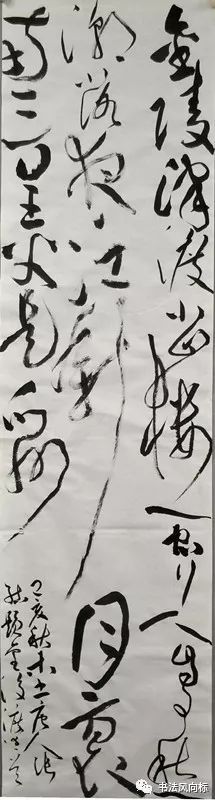 金陵津渡小山楼一宿行人自可愁
潮落夜江斜月里
两三星火是瓜州
己亥秋 唐人张
祜题金陵渡
书法风向标